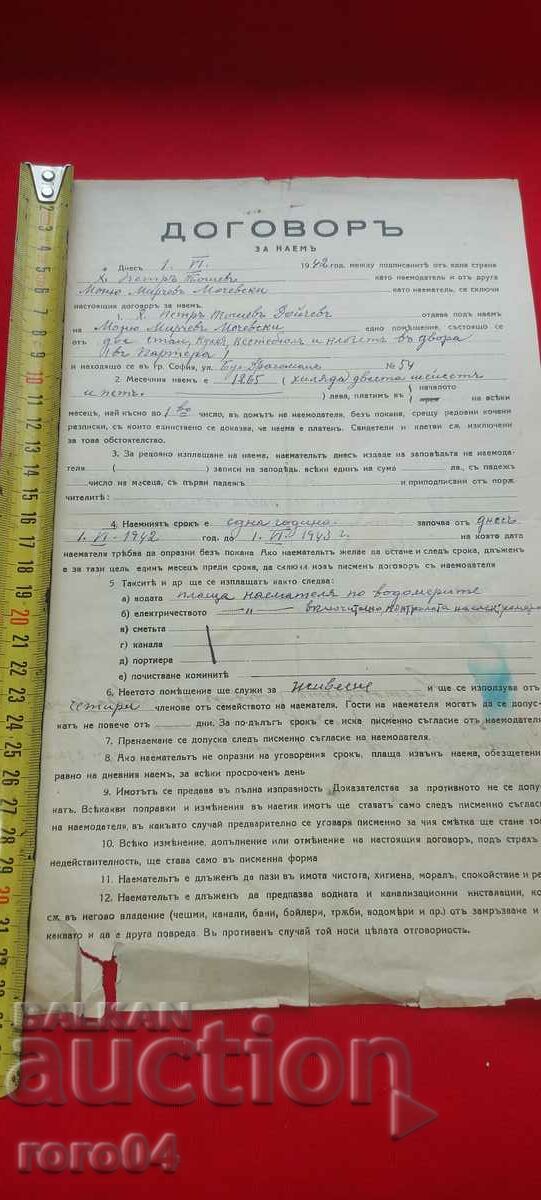 ДОГОВОРЪ
ЗА НАЕМЪ
Днесъ 1. VI. 1942 год. между подписанитѣ отъ една страна
Х. Петръ Тошевъ като наемодатель и отъ друга
Моню Мирчевъ Мочевски като наематель, се сключи
настоящия договоръ за наемъ.
1. Х. Петръ Тошевъ Дойчевъ отдава подъ наемъ
на Моню Мирчевъ Мочевски едно помѣщение, състояще се
отъ две стаи, кухня, вестибюл и клозетъ въ двора
Партера
и находящо се въ гр. София, ул. Бул. Драгоманъ № 54
2. Месечния наемъ е 1265 (хиляда двеста шесетъ
и петь.) лева, платимъ въ началото на всѣки
месецъ, най късно до 1во число, въ домътъ на наемодателя, безъ покана, срещу редовни кочани
разписки, съ които единствено се доказва, че наема е платенъ. Свидетели и клетви сж изключени
за това обстоятелство.
3. За редовно изплащане на наема, наемательтъ днесъ издаде на заповѣдьта на наемода-
теля ( ) записи на заповѣдь. всѣки единъ на сума ла, съ падежъ
число на месеца, съ първи падежъ и приподписани отъ порж
чителитѣ:
4. Наемниятъ срокъ е една година започва отъ днесъ
1. VI. 1942 год. до 1. VI. 1943 г. на която дата
наемателя трѣбва да опразни безъ покана. Ако наемательтъ желае да остане и следъ срока, длъженъ
е за тази цель единъ месецъ преди срока, да сключи новъ писменъ договоръ съ наемодателя
5. Таксите и др ще се изплащатъ както следва:
а) водата плаща наемателя по водомерите
б) електричеството —„— включително контролата на елек.
в) сметьта
г) канала
д) портиера
е) почистване коминитѣ
6. Наетото помѣщение ще служи за живеене и ще се използува отъ
четири членове отъ семейството на наемателя. Гости на наемателя могатъ да се допус-
катъ не повече отъ дни. За по-дългъ срокъ се иска писмено съгласие отъ наемодателя
7. Пренаемане се допуска следъ писмено съгласие на наемодателя.
8. Ако наемательтъ не опразни на уговорения срокъ, плаща извънъ наема, обезщетени
равно на дневния наемъ, за всѣки просроченъ день
9. Имотътъ се предава въ пълна изправность Доказателства за противното не се допу
катъ. Всѣкакви поправки и изменѣния въ наетия имотъ ще ставатъ само следъ писмено съгласи
на наемодателя, въ какъвто случай предварително се уговаря писмено за чия смѣтка ще стане тов
10. Всѣко изменение, допълнение или отмѣнение на настоящия договоръ, подъ страхъ
недействителность, ще става само въ писменна форма
11. Наемательтъ е длъженъ да пази въ имота чистота, хигиена, моралъ, спокойствие и ре
12. Наемательтъ е длъженъ да предпазва водната и канализационни инсталации, ко
сж въ негово владение (чешми, канали, бани, бойлери, тржби, водомѣри и пр.) отъ замръзване и
каквато и да е друга повреда. Въ противенъ случай той носи цѣлата отговорность.
BALKAN
auction
roro04